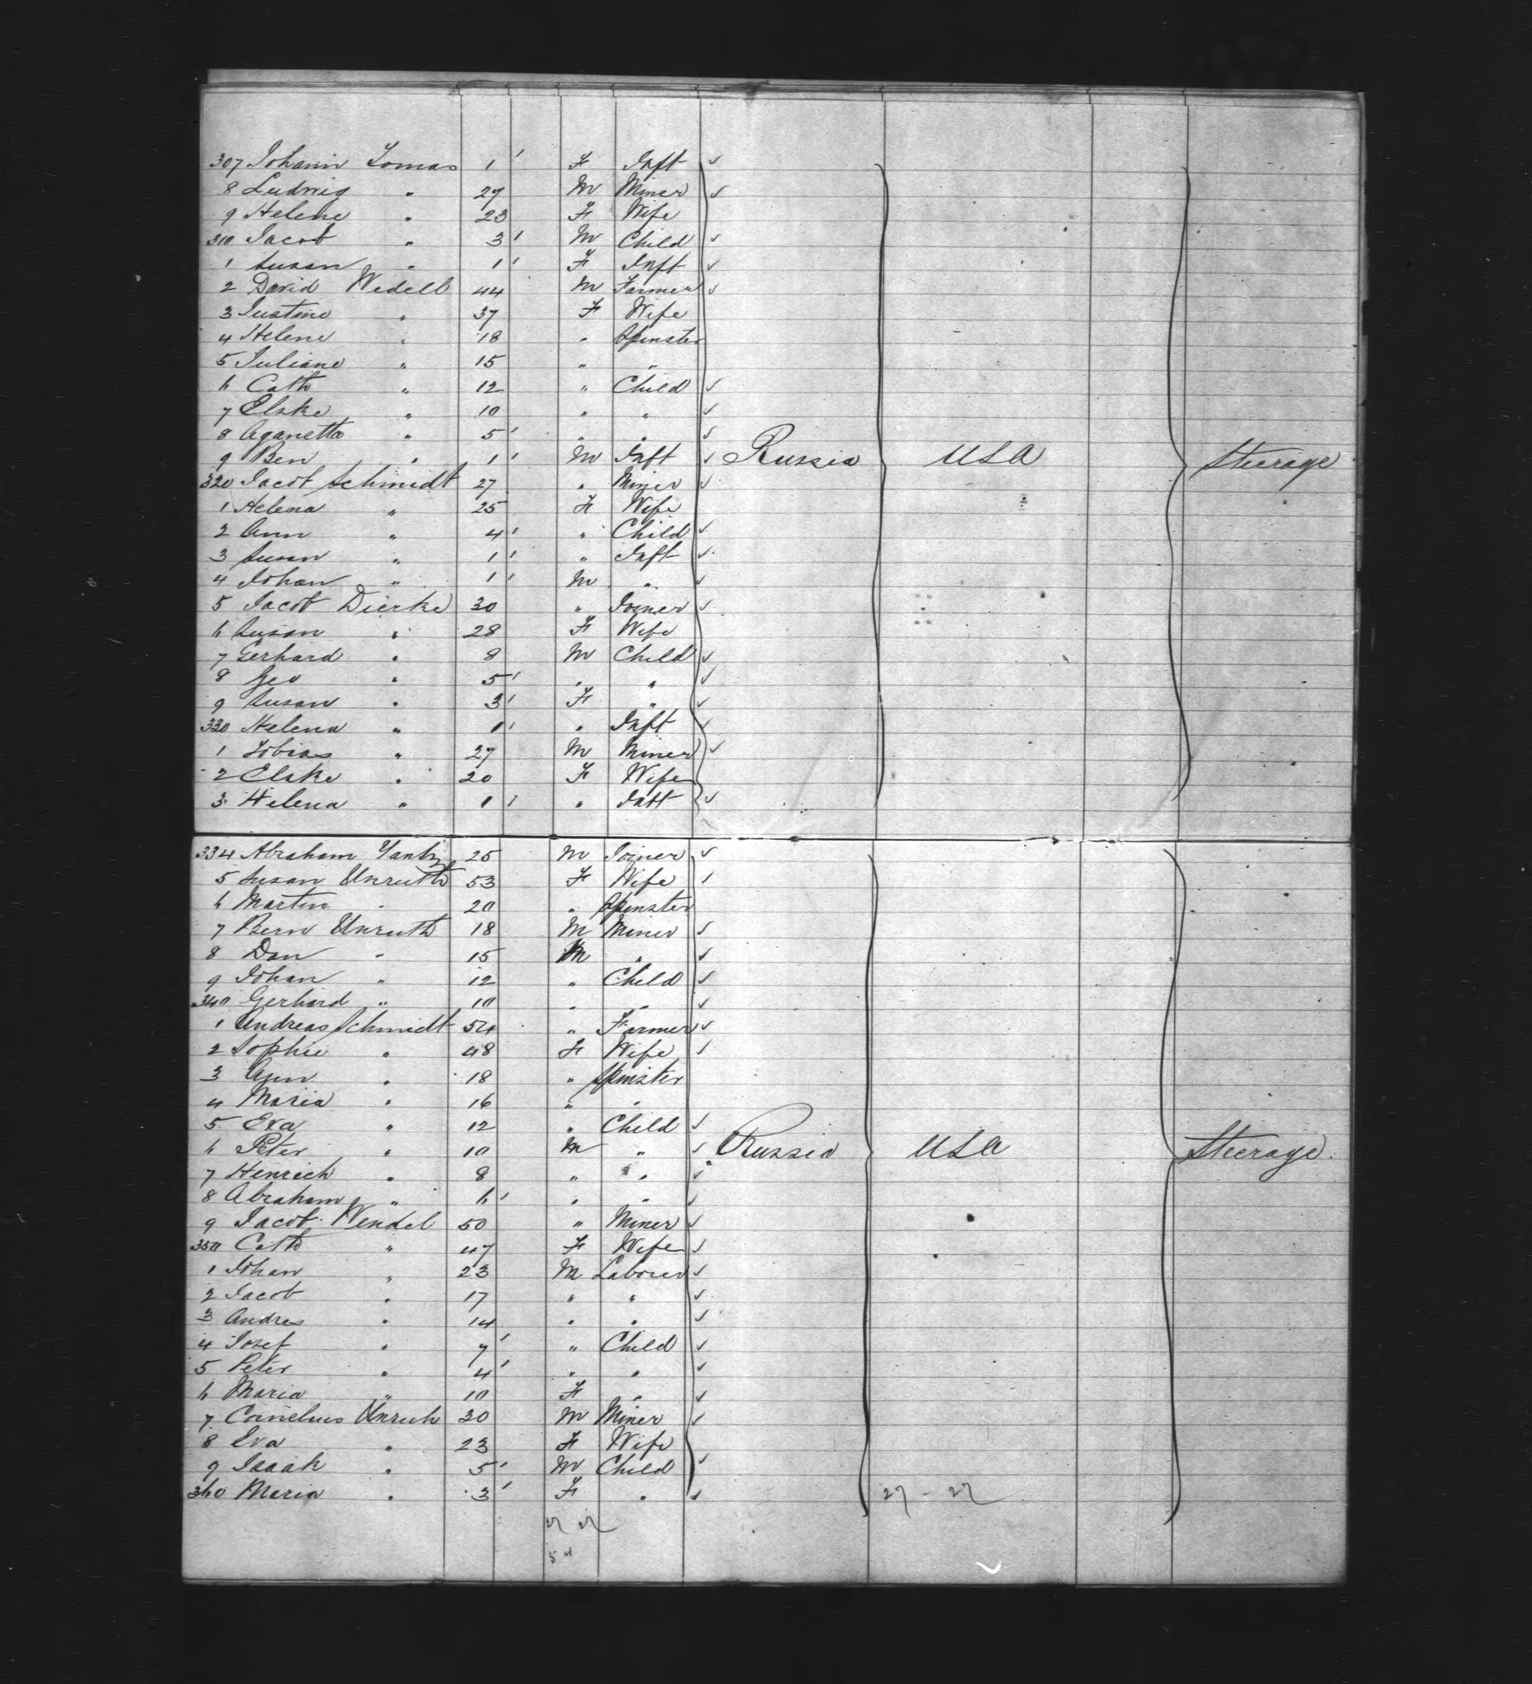 307 Johann Tomas 1 ' F Inft ✓
8 Ludwig " 27 M Miner ✓
9 Helene " 23 F Wife
310 Jacob " 3 ' M Child ✓
1 Susan " 1 ' F Inft ✓
2 David Wedell 44 M Farmer ✓
3 Justine " 37 F Wife
4 Helene " 18 " Spinster
5 Juliane " 15 " "
6 Cath " 12 " Child ✓
7 Elske " 10 " " ✓
8 Aganetta " 5 ' " " ✓
9 Ben " 1 ' M Inft ✓ Russia USA Steerage
320 Jacob Schmidt 27 " Miner ✓
1 Helena " 25 F Wife
2 Ann " 4 ' " Child ✓
3 Susan " 1 ' " Inft ✓
4 Johan " 1 ' M " ✓
5 Jacob Dierke 30 " Joiner ✓
6 Susan " 28 F Wife
7 Gerhard " 8 M Child ✓
8 Geo " 5 ' " " ✓
9 Susan " 3 ' F " ✓
330 Helena " 1 ' " Inft ✓
1 Tobias " 27 M Miner ✓
2 Elske " 20 F Wife
3 Helena " 1 ' " Inft ✓
334 Abraham 25 M Joiner ✓
5 Susan Unruth 53 F Wife ✓
6 Martin " 20 " Spinster
7 Bern Unruth 18 M Miner ✓
8 Dan " 15 M " ✓
9 Johan " 12 " Child ✓
340 Gerhard " 10 " " ✓
1 Andreas Schmidt 54 " Farmer ✓
2 Sophie " 48 F Wife ✓
3 Ann " 18 " Spinster
4 Maria " 16 " "
5 Eva " 12 " Child ✓
6 Peter " 10 M " ✓ Russia USA Steerage
7 Henrich " 8 " " ✓
8 Abraham " 6 ' " " ✓
9 Jacob Wendel 50 " Miner ✓
350 Cath " 47 F Wife ✓
1 Johan " 23 M Laborer ✓
2 Jacob " 17 " " ✓
3 Andres " 14 " " ✓
4 Josef " 7 ' " Child ✓
5 Peter " 4 ' " " ✓
6 Maria " 10 F " ✓
7 Cornelius Unruh 30 M Miner ✓
8 Eva " 23 F Wife
9 Isaak " 5 ' M Child ✓
360 Maria " 3 ' F " ✓ 27 - 27
27 27
54